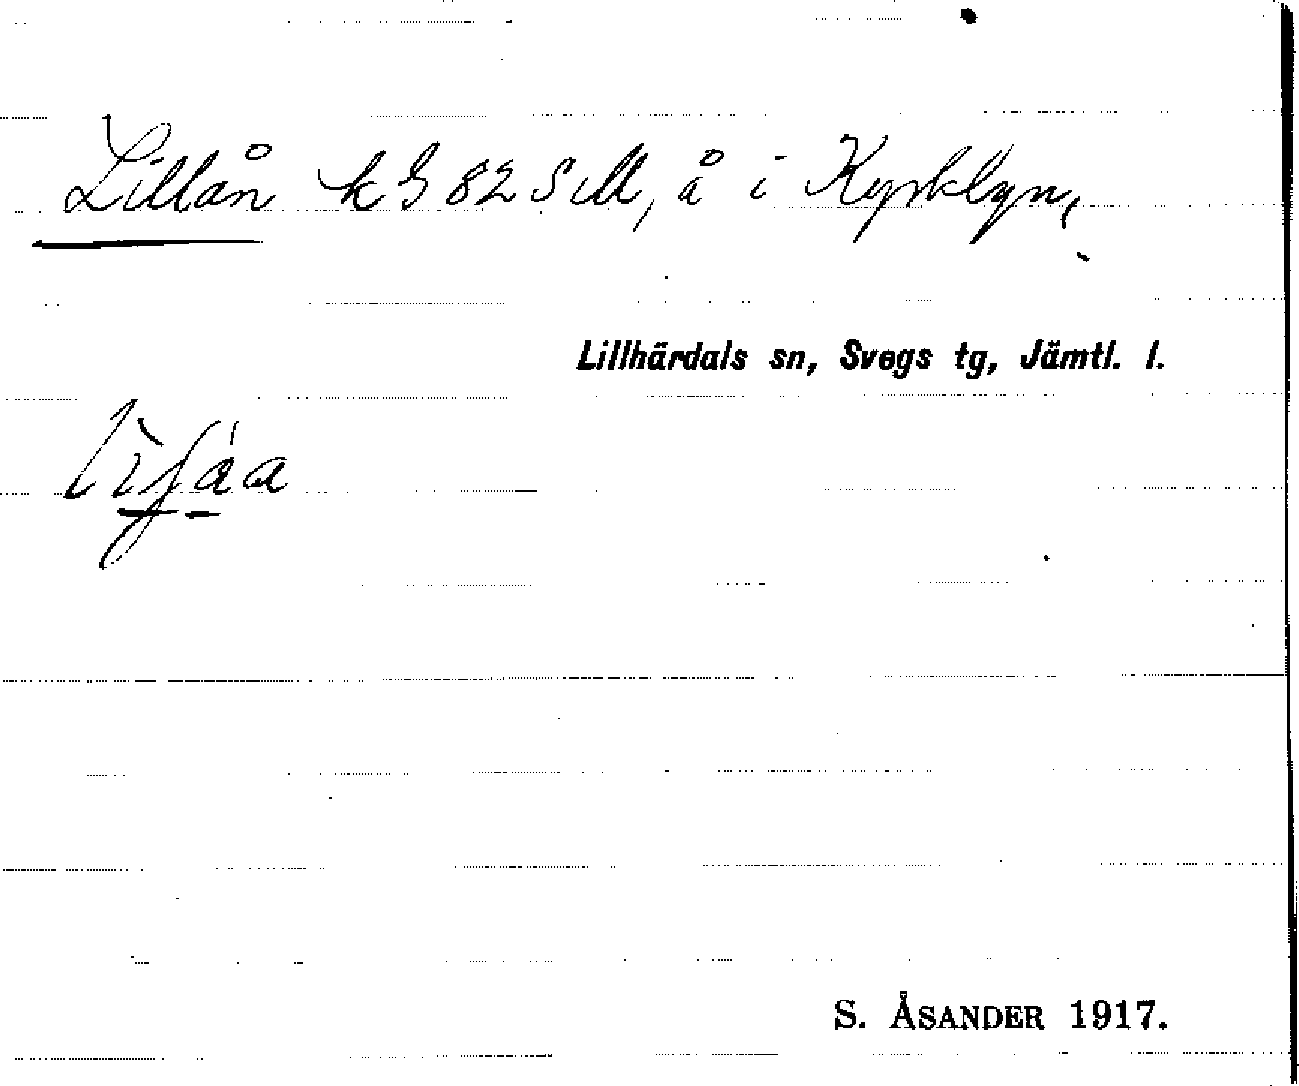 Lillån k G 82 S M, å i Kyrkbyn,
Lillhärdals sn, Svegs tg, Jämtl. l.
S. ÅSANDER 1917.